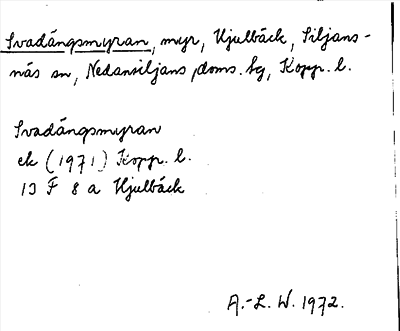 Svadängsmyran, myr, Hjulbäck, Siljans-
näs sn, Nedansiljans doms. tg, Kopp. l.
Svadängsmyran
ek (1971) Kopp. l.
13 F 8 a Hjulbäck
A.-L. W. 1972.